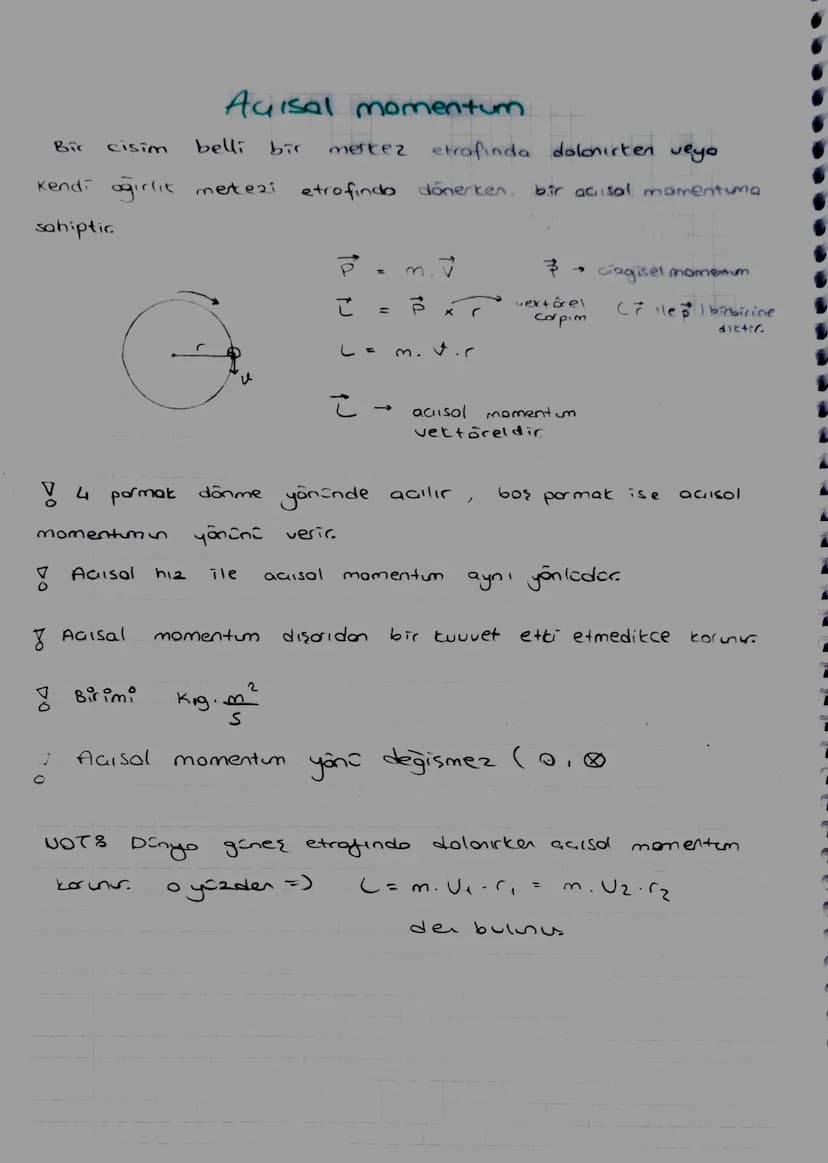 Açısal momentum
Bir cisim belli bir merkez etrafında dolanırken veya
kendi ağırlık merkezi etrafında dönerken bir açısal momentuma
sahiptir.
P = m.V
P → çizgisel momentum
L = P x r → vektörel çarpım (r ile p) birbirine diktir.
L = m.v.r
r
v
L → açısal momentum
vektöreldir.
! 4 parmak dönme yönünde açılır, baş parmak ise açısal
momentumun yönünü verir.
! Açısal hız ile açısal momentum aynı yönlüdür.
! Açısal momentum dışarıdan bir kuvvet etki etmedikçe korunur.
! Birimi kg.m²/s
! Açısal momentum yönü değişmez (⊙, ⊗
NOT: Dünya güneş etrafında dolanırken açısal momentum
korunur. o yüzden => L = m.V₁.r₁ = m.V₂.r₂
den bulunur